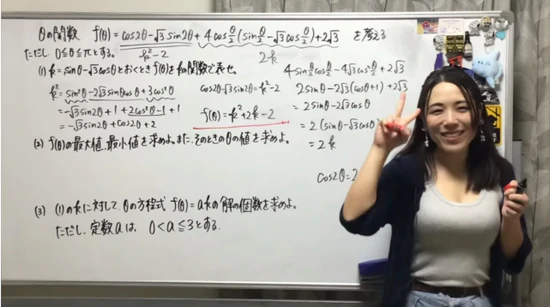 θの関数 f(θ)=cos2θ-√3 sin2θ+4cosθ/2(sinθ/2-√3cosθ/2)+2√3 を考える
ただし 0≦θ≦πとする。
k²-2
2k
(1) k=sinθ-√3cosθとおくとき f(θ)をkの関数で表せ。
k²=sin²θ-2√3sinθcosθ+3cos²θ
=-√3sin2θ+1+2cos²θ-1+1
=-√3sin2θ+cos2θ+2
cos2θ-√3sin2θ=k²-2
f(θ)=k²+2k-2
4sinθ/2cosθ/2-4√3cos²θ/2+2√3
2sinθ-2√3(cosθ+1)+2√3
=2sinθ-2√3cosθ
=2(sinθ-√3cosθ
=2k
(2) f(θ)の最大値、最小値を求めよ。また、そのときのθの値を求めよ。
cos2θ=2
(3) (1)のkに対して、θの方程式 f(θ)=akの解の個数を求めよ。
ただし、定数aは、0<a≦3とする。